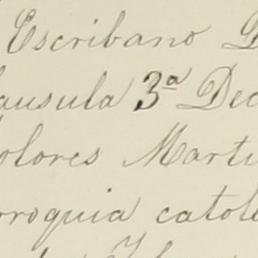 Escribano
ausula 3ª Dec
olores Marti
rroquia catol